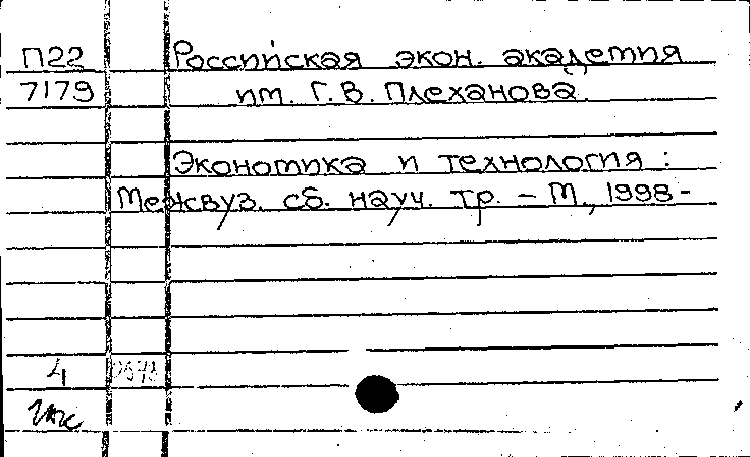 П22 Российская экон. академия
7179 им. Г. В. Плеханова.
Экономика и технология :
Межвуз. сб. науч. тр. – М., 1998 -
4